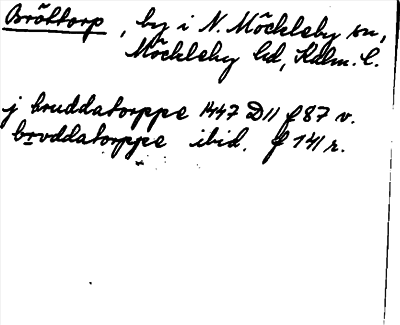 Bröttorp, by i N. Möckleby sn,
Möckleby hd, Kalm. l.
j bruddatorppe 1447 D11 f 87 v.
broddatorppe ibid. f 141 r.